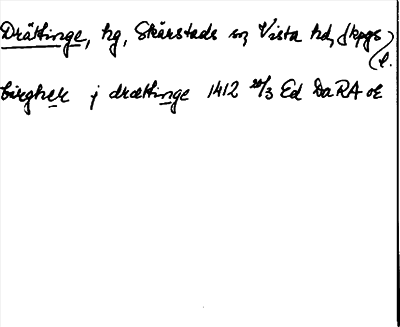 Drättinge, hg, Skärstads sn, Vista hd, Jkpgs l.
birgher j drættinge 1412 20/3 Ed DaRA oE